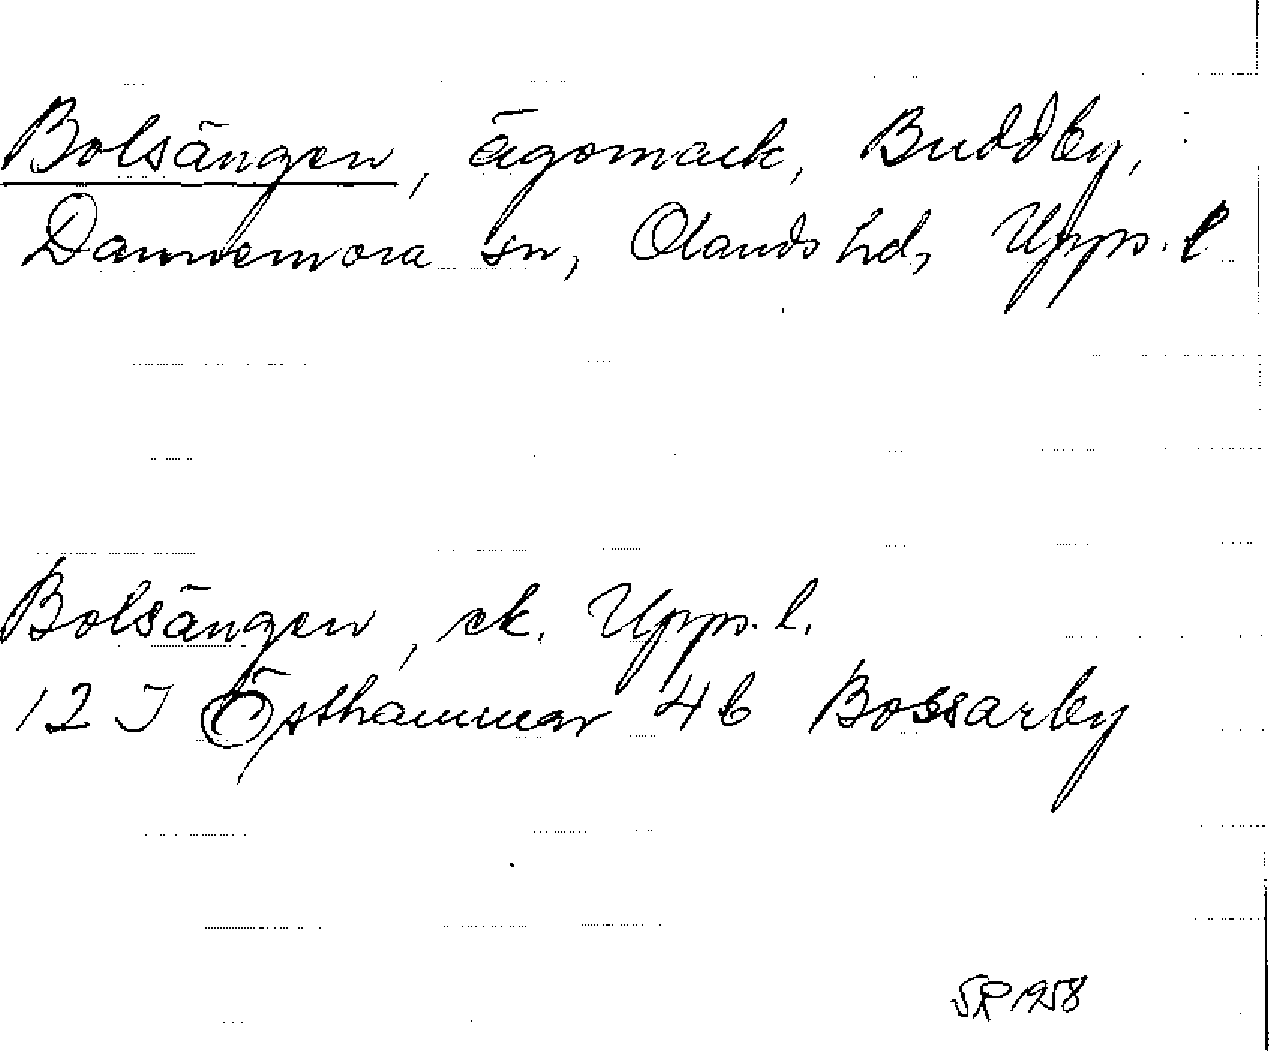 Bolsängen, ägomark, Buddby,
Dannemora sn, Olands hd, Upps. l
Bolsängen, ek. Upps. l.
12 I Östhammar 4b Bossarby
SR 1958